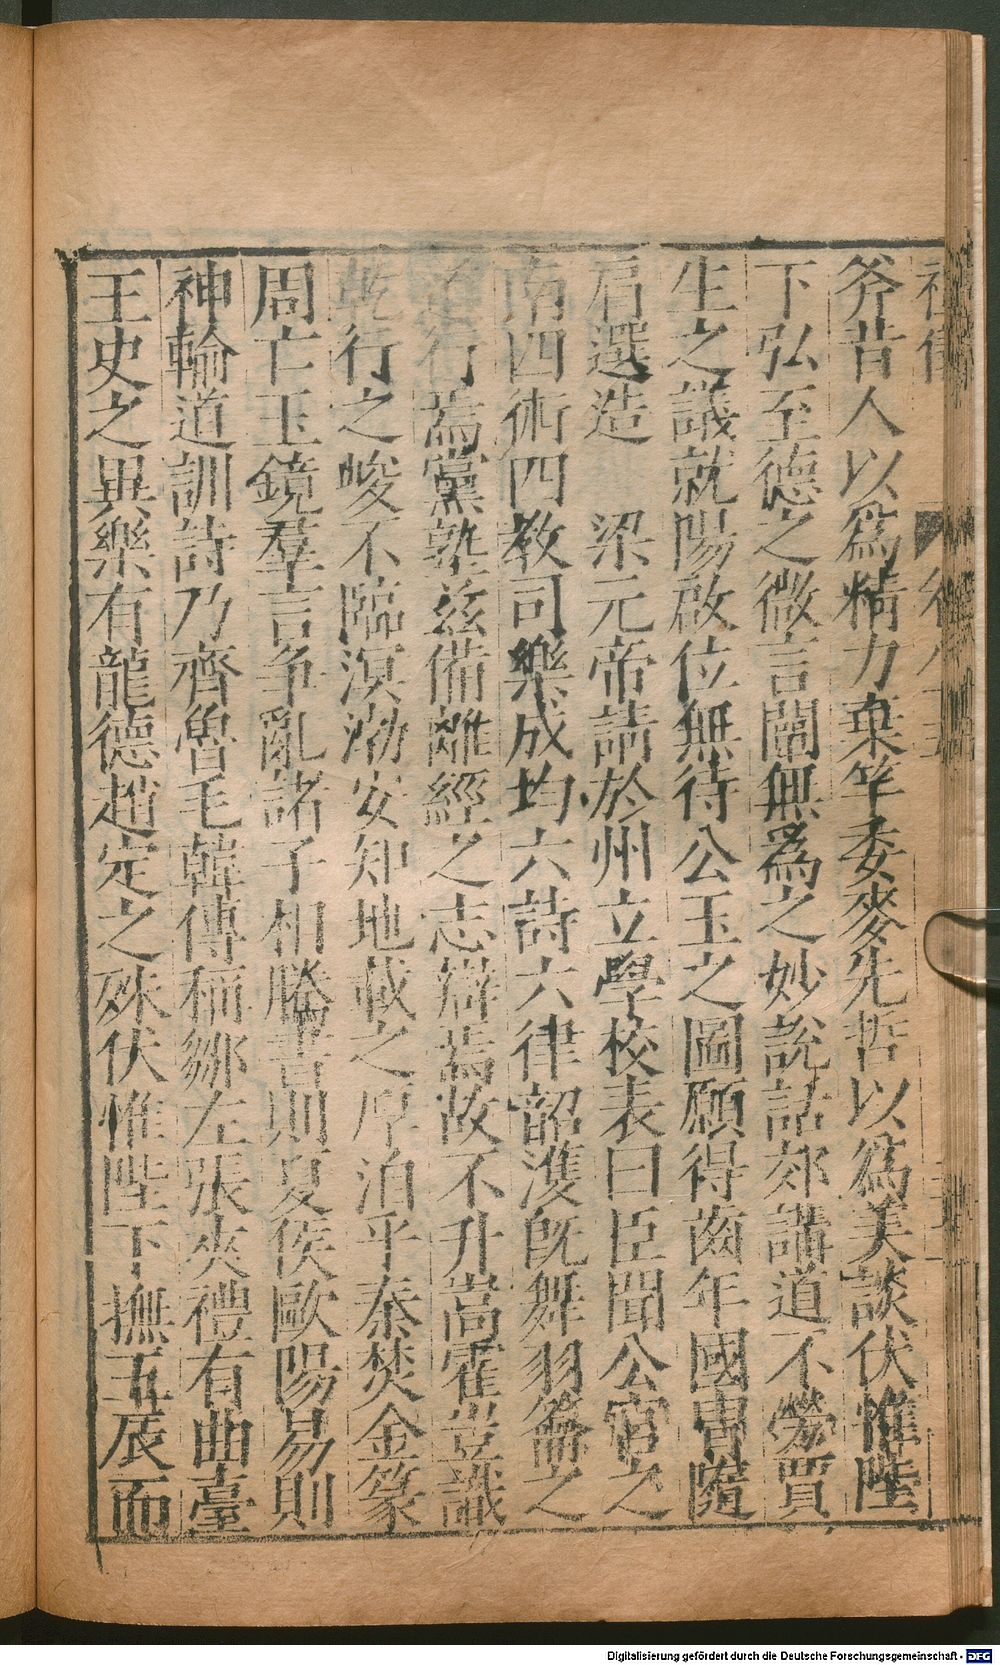 斧昔人以爲精力棄竿委麥先哲以爲美談伏惟陛
下弘至德之微言闡無爲之妙說詁郊講道不勞買
生之議就陽啟位無待公玉之圖願得齒年國胄隨
肩選造　梁元帝請於州立學校表曰臣聞公宫之
南四術四教司樂成均六詩六律韶濩旣舞羽籥之
行焉黨塾茲備離經之志辯焉故不升嵩霍豈識
乾行之峻不臨溟渤安知地載之厚洎乎秦焚金篆
周亡玉鏡羣言争亂諸子相勝書則夏侯歐陽易則
神輸道訓詩乃齊魯毛韓傳稱鄒左張夾禮有曲臺
王史之異樂有龍德趙定之殊伏惟陛下撫玉辰而
Digitalisierung gefördert durch die Deutsche Forschungsgemeinschaft - DFG